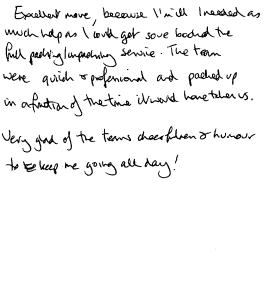 Excellent move, because I'm ill I needed as
much help as I could get so we booked the
full packing/unpacking service. The team
were quick & professional and packed up
in a fraction of the time it would have taken us.
Very glad of the teams cheerfulness & humour
to keep me going all day!